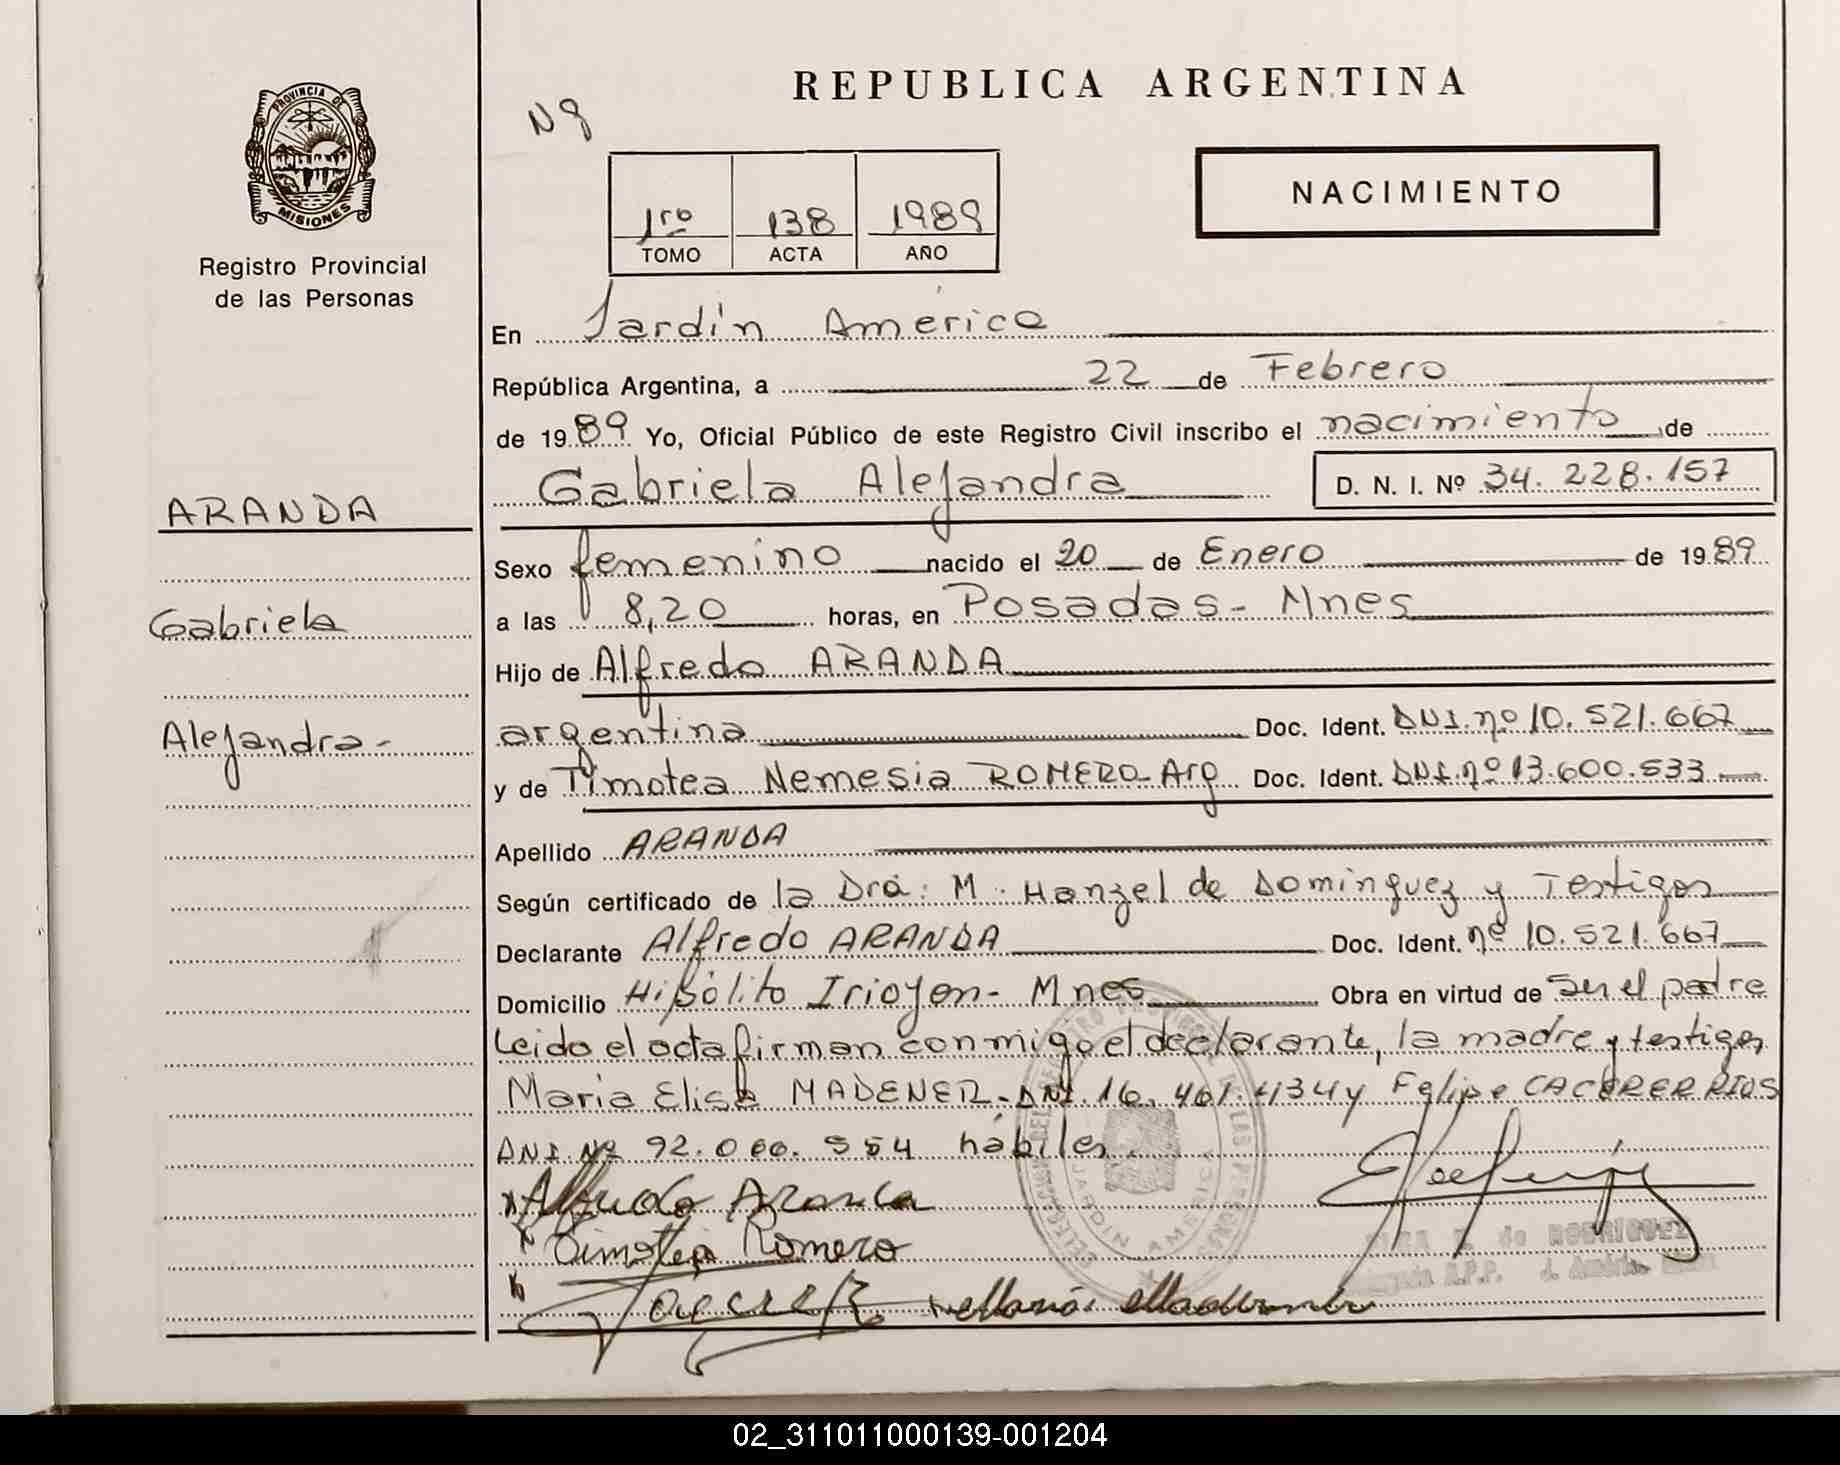 REPUBLICA ARGENTINA
PROVINCIA DE
MISIONES
Registro Provincial
de las Personas
Nº
1ro 138 1989
TOMO ACTA AÑO
NACIMIENTO
En Jardín América
República Argentina, a 22 de Febrero
de 1989 Yo, Oficial Público de este Registro Civil inscribo el nacimiento de
Gabriela Alejandra D. N. I. Nº 34.228.157
ARANDA
Gabriela
Alejandra-
Sexo femenino nacido el 20 de Enero de 1989
a las 8,20 horas, en Posadas- Mnes
Hijo de Alfredo ARANDA
argentina Doc. Ident. DNI.nº 10.521.667
y de Timotea Nemesia ROMERO-Arg Doc. Ident. DNI.nº 13.600.533
Apellido ARANDA
Según certificado de la Dra: M. Hanzel de Dominguez y Testigos
Declarante Alfredo ARANDA Doc. Ident. nº 10.521.667
Domicilio Hipólito Irioyen- Mnes Obra en virtud de ser el padre
Leido el acta firman conmigo el declarante, la madre y testigos
Maria Elisa MADENER-DNI.16.461.434 y Felipe RIOS
DNI.Nº 92.000.554 hábiles.
JARDIN AMERICA
Alfredo Aranda
Timotea Romero
de RODRIGUEZ
02_311011000139-001204